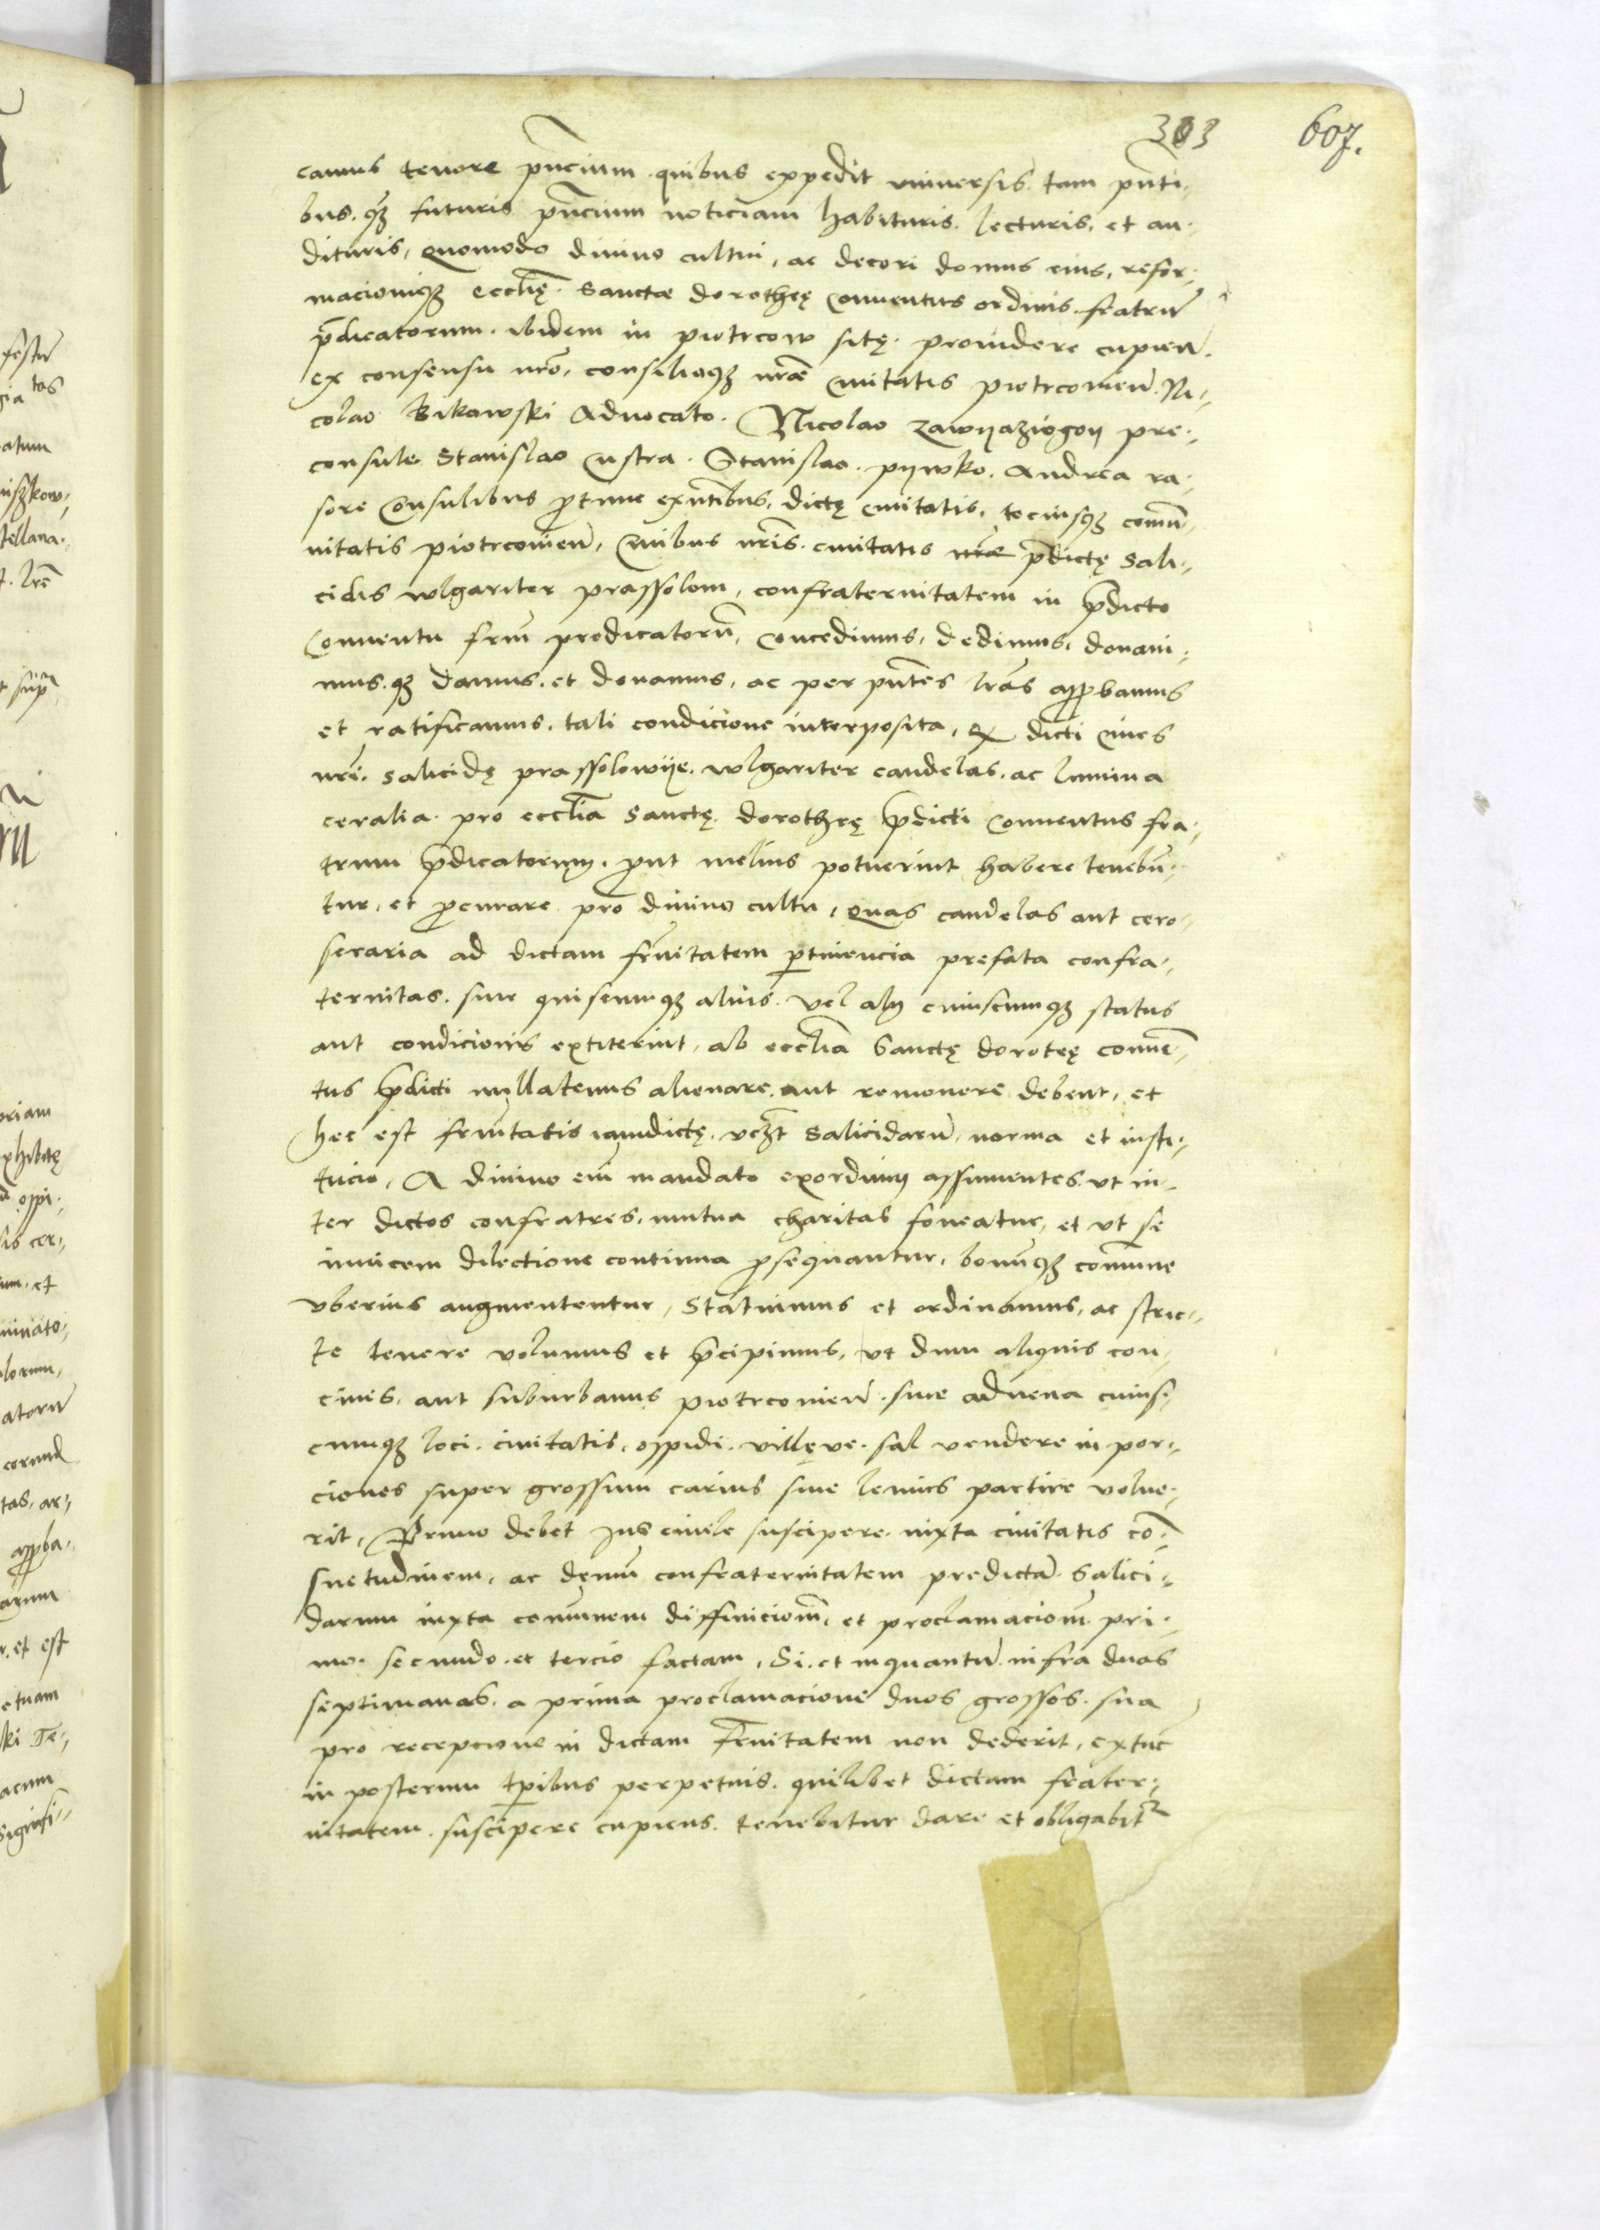 303 607.
camus tenore pñcium quibus expedit vniuersis tam pñti-
bus qȝ futuris pñcium noticiam habituris lecturis et au-
dituris, quomodo diuino cultui, ac decori domus eius, refor-
macioniqȝ ecclie̜ Sanctæ dorothee̜ Conuentus ordinis fratrũ
p̃dicatorum ibidem in piotrcow site̜ prouidere cupien̄
ex consensu nr̃o, consilioqȝ nr̃æ Ciuitatis piotrcouien̄ Ni-
colao Bikawski Aduocato. Nicolao zawyaziogoy pre-
consule Stanislao Custra. Stanislao pywko. Andrea ra-
sore Consulibus p̱tunc exñtibus, dicte̜ Ciuitatis, tociusqȝ comũ-
nitatis piotrcouien̄, Ciuibus nr̃is ciuitatis nr̃æ p̃dicte̜ Sali-
cidis wlgariter prassolom, confraternitatem in p̃dicto
Conuentu frũm predicatorũ, Concedimus, dedimus, donaui-
mus qȝ damus et donamus, ac per pñtes lr̃as approbamus
et ratificamus, tali condicione interposita, qꝫ dicti Ciues
nr̃i Salicide̜ prassolowye wlgariter candelas ac lumina
ceralia pro ecclia Sancte̜ dorothee̜ p̃dicti Conuentus fra-
trum p̃dicatorum, put melius potuerint habere tenebũ-
tur, et p̱curare pro diuino cultu, quas candelas aut cero-
feraria ad dictam fr̃nitatem p̱tinencia prefata confra-
ternitas siue quiscumqȝ alius vel alij cuiuscumqȝ status
aut condicionis extiterint, ab ecclia Sancte̜ dorotee̜ conuẽ-
tus p̃dicti nullatenus alienare aut remouere debent, et
hec est fr̃nitatis iamdicte̜ vcȝt Salicidarũ norma et insti-
tucio, A diuino em̃ mandato exordium assumentes vt in-
ter dictos confratres, mutua charitas foueatur, et vt se
inuicem dilectione continua p̱sequantur, bonũqȝ comune
vberius augmententur, Statuimus et ordinamus, ac stric-
te tenere volumus et p̃cipimus, vt dum aliquis con-
ciuis, aut suburbanus piotrcouien̄ siue aduena cuius-
cumqȝ loci, ciuitatis, oppidi, ville̜ve sal vendere in por-
ciones super grossum carius siue leuius partire volue-
rit, Primo debet Jus ciuile suscipere iuxta ciuitatis cõ-
suetudinem, ac demũ confraternitatem predictã Salici-
darum iuxta comunem diffinicionẽ, et proclamacionẽ pri-
mo secundo et tercio factam, Si et inquantũ infra duas
septimanas a prima proclamacione duos grossos sua
pro recepcione in dictam fr̃nitatem non dederit, extũc
in posterum tp̱ibus perpetuis quilibet dictam frater-
nitatem suscipere cupiens tenebitur dare et obligabit̃